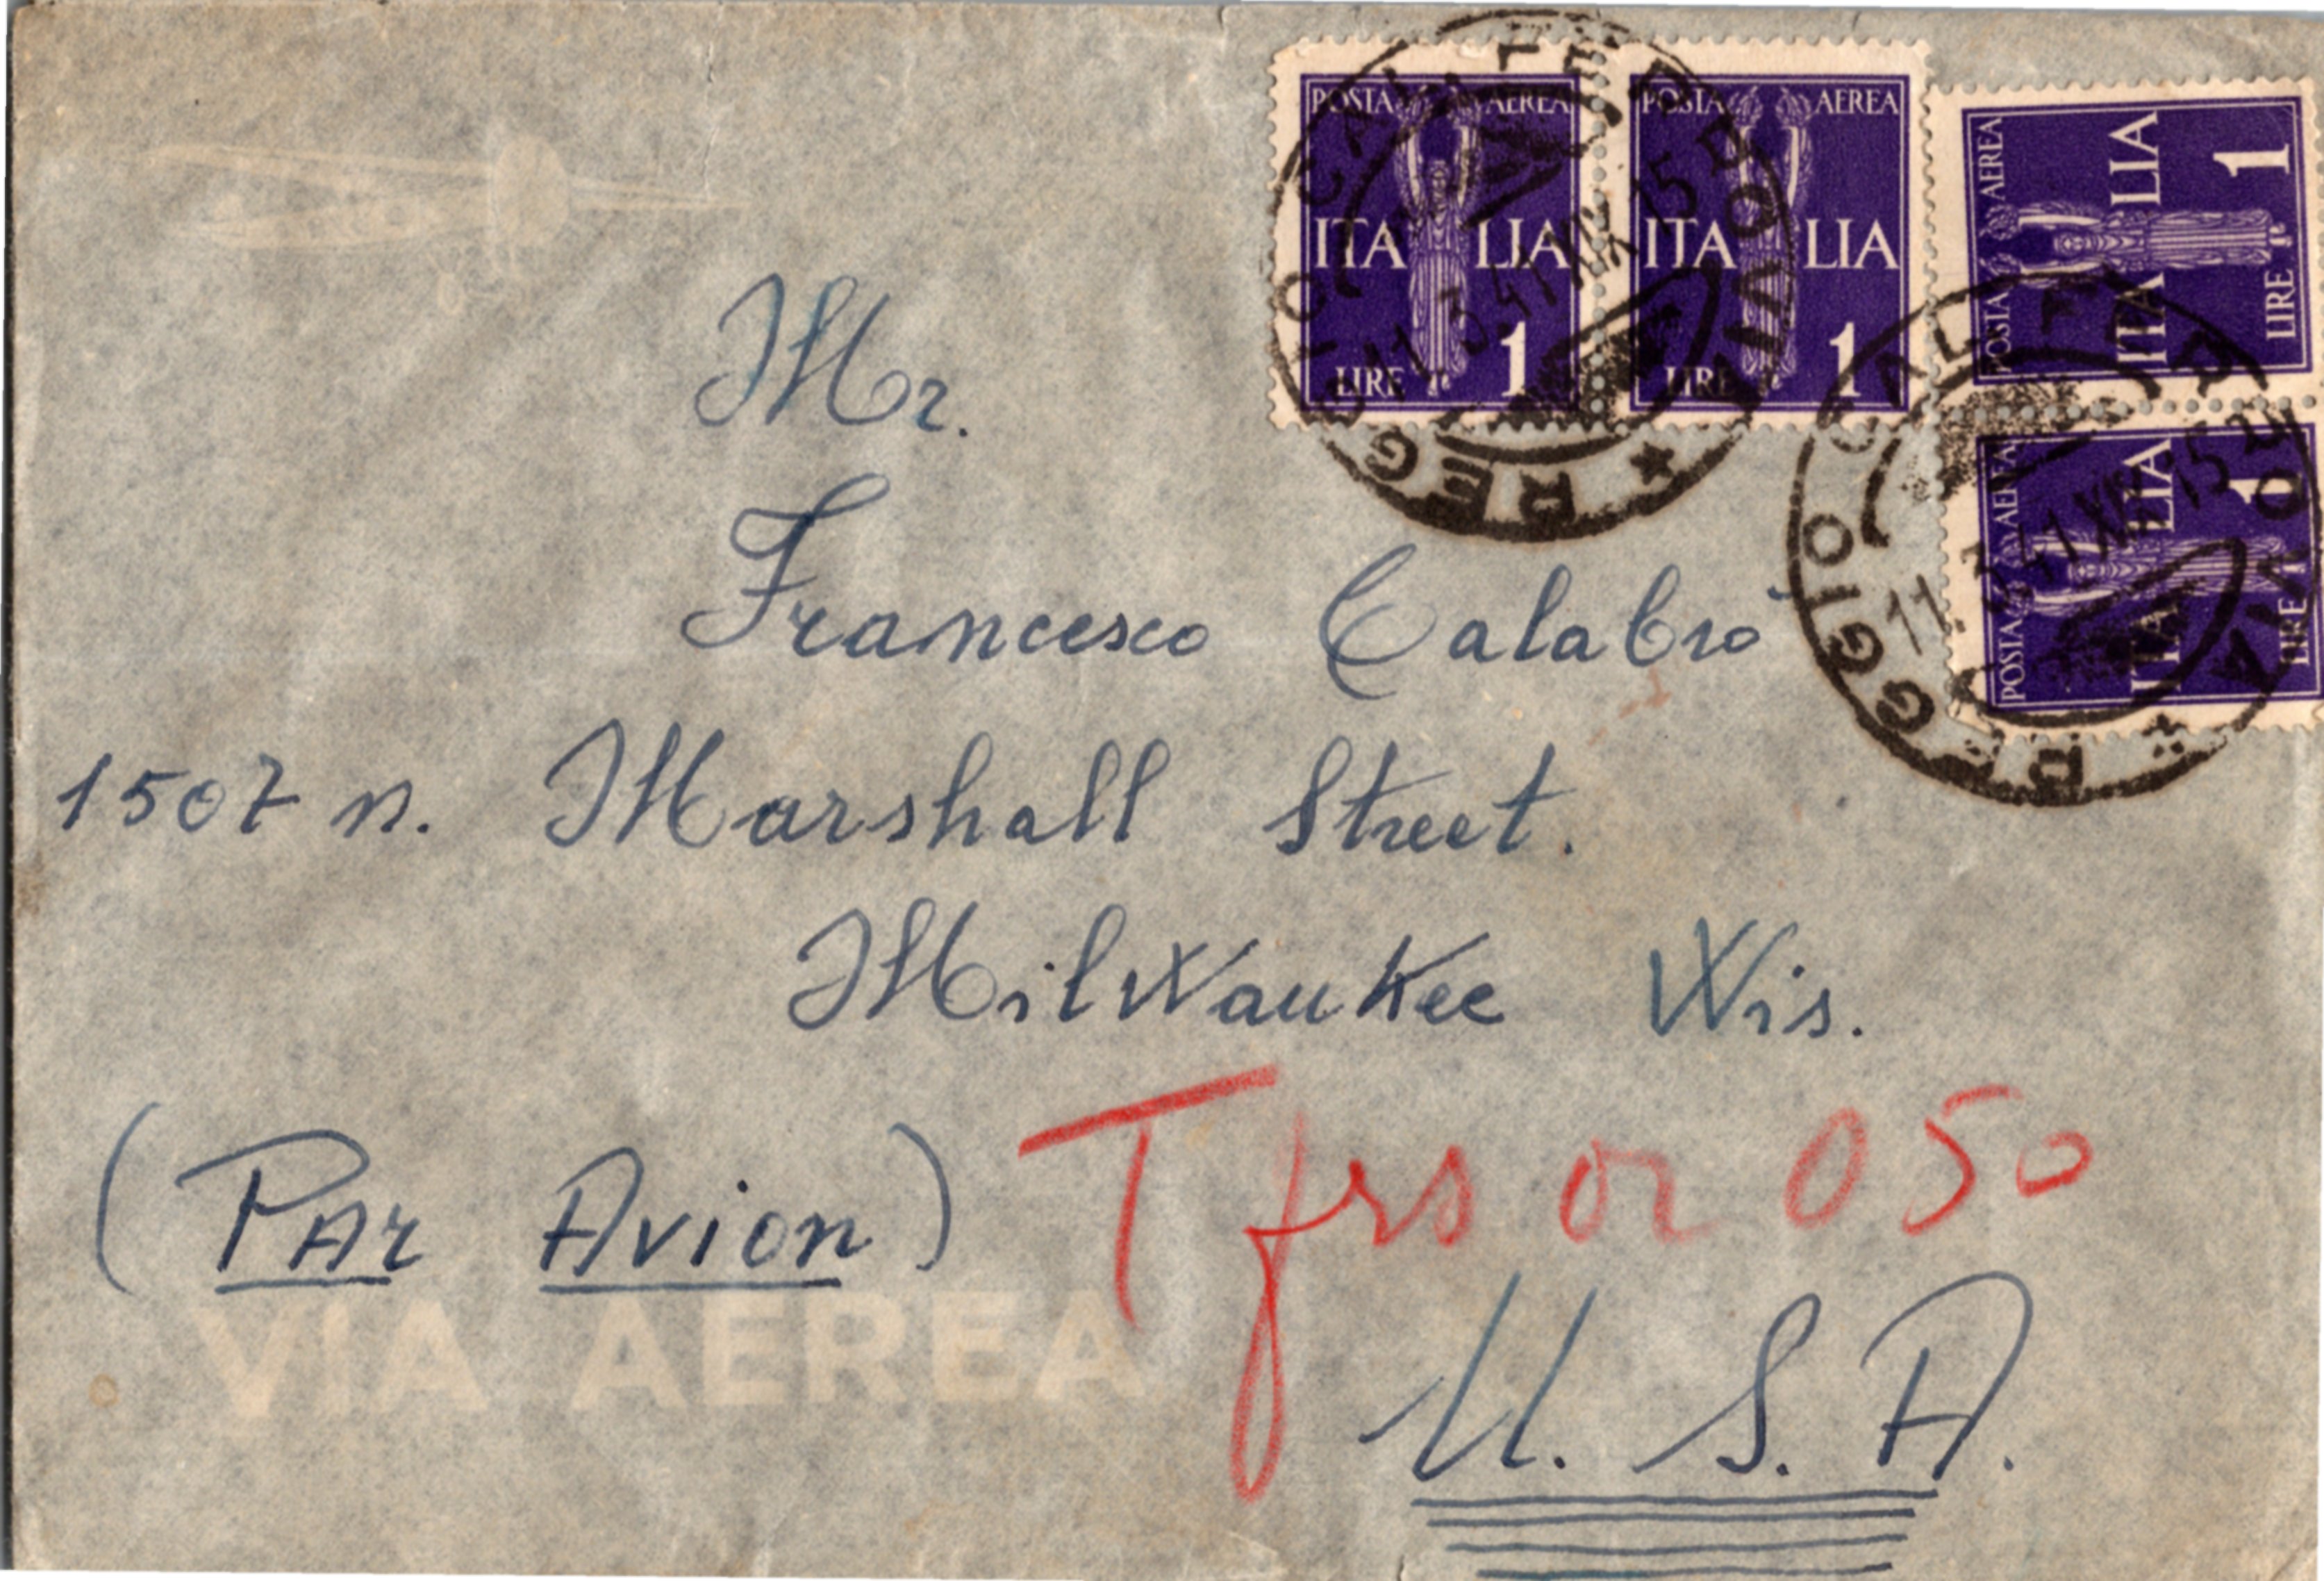 POSTA AEREA
ITALIA
LIRE 1
POSTA AEREA
ITALIA
LIRE 1
POSTA AEREA
ITALIA
LIRE 1
POSTA AEREA
ITALIA
LIRE 1
REGGIO CAL
11.3.41 XIX 15
REGGIO CAL
11.3.41 XIX 15
Mr.
Francesco Calabrò
1507 n. Marshall Street.
MilWauKee Wis.
(PAr Avion)
T frs or 0 50
VIA AEREA
U. S. A.